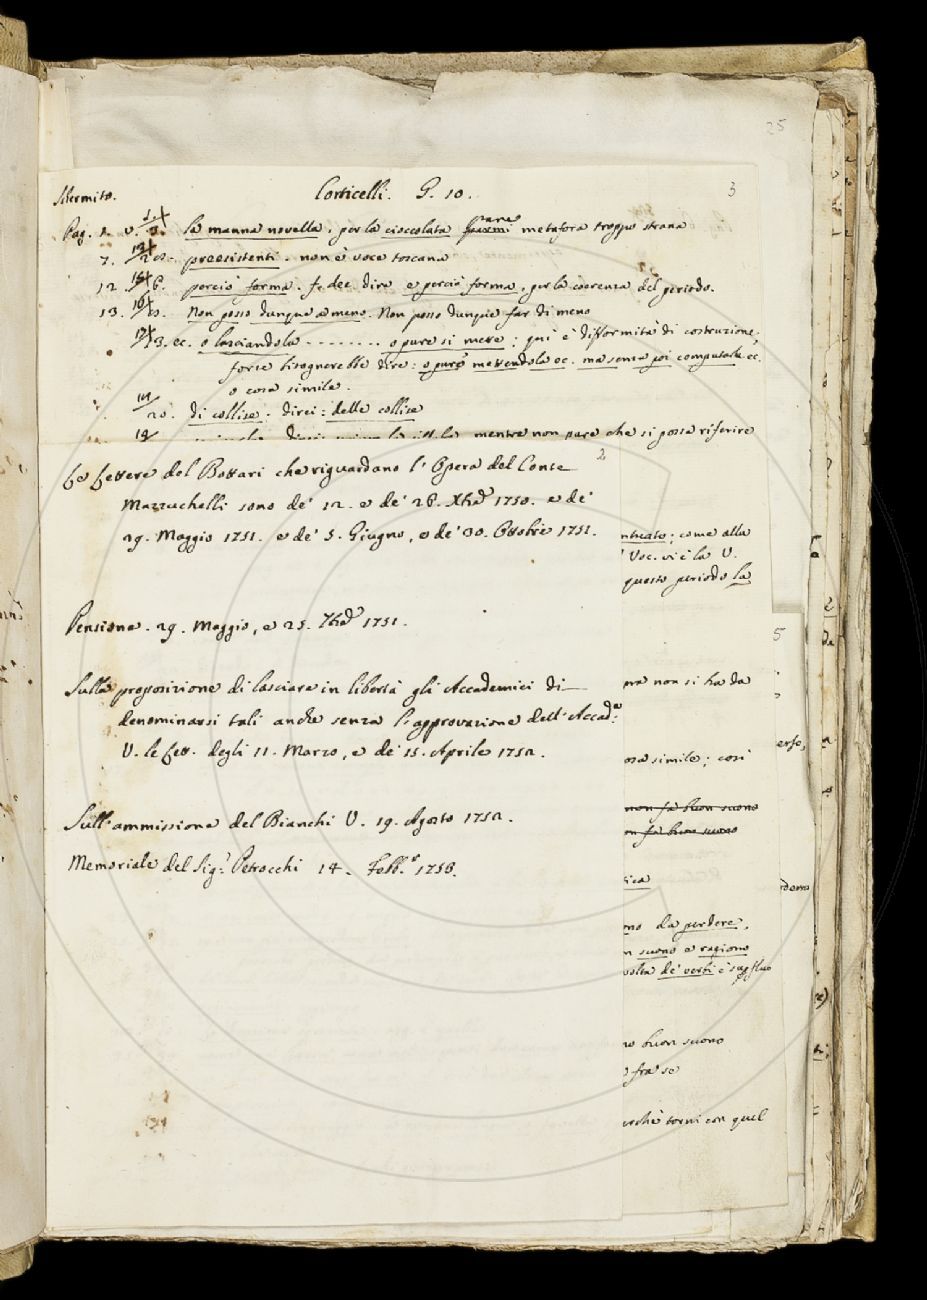 25
3
Corticelli. G. 10.
Pag. 2. v.
la manna novella. per la cioccolata pare metafora troppo strana
7. preesistenti. non è voce toscana
12. perciò forma. f. dee dire e perciò forma, per la coerenza del periodo.
13. Non posso dunque a meno. Non posso dunque far di meno
ec. o lasciandola - - - - - - - - o pure si mere: qui è difformità di costruzione,
forse bisognerebbe dire: o pure mettendola ec. ma senza poi computarla ec.
o cosa simile.
20. di collise. direi: delle collise
mentre non pare che si possa riferire
2
Le Lettere del Bottari che riguardano l'Opera del Conte
Mazzuchelli sono de' 12. e de' 28. Xbre 1750. e de'
29. Maggio 1751. e de' 5. Giugno, e de' 30. Ottobre 1751.
Pensione. 29. Maggio, e 25. 7bre 1751.
Sulla proposizione di lasciare in libertà gli Accademici di
denominarsi tali anche senza l'approvazione dell'Accad.a
V. le Lett. degli 11. Marzo, e de' 15. Aprile 1752.
Sull'ammissione del Bianchi V. 19. Agosto 1752.
Memoriale del Sig.r Petrocchi 14. Febb.o 1758.
nticato; come alla
Voc. vi è la V.
questo periodo la
5
pra non si ha da
osa simile; così
non fa buon suono
fa buon suono
tica
no da perdere,
suono e ragione
volta de' versi è superfluo
no buon suono
fra se
perchè torni con quel